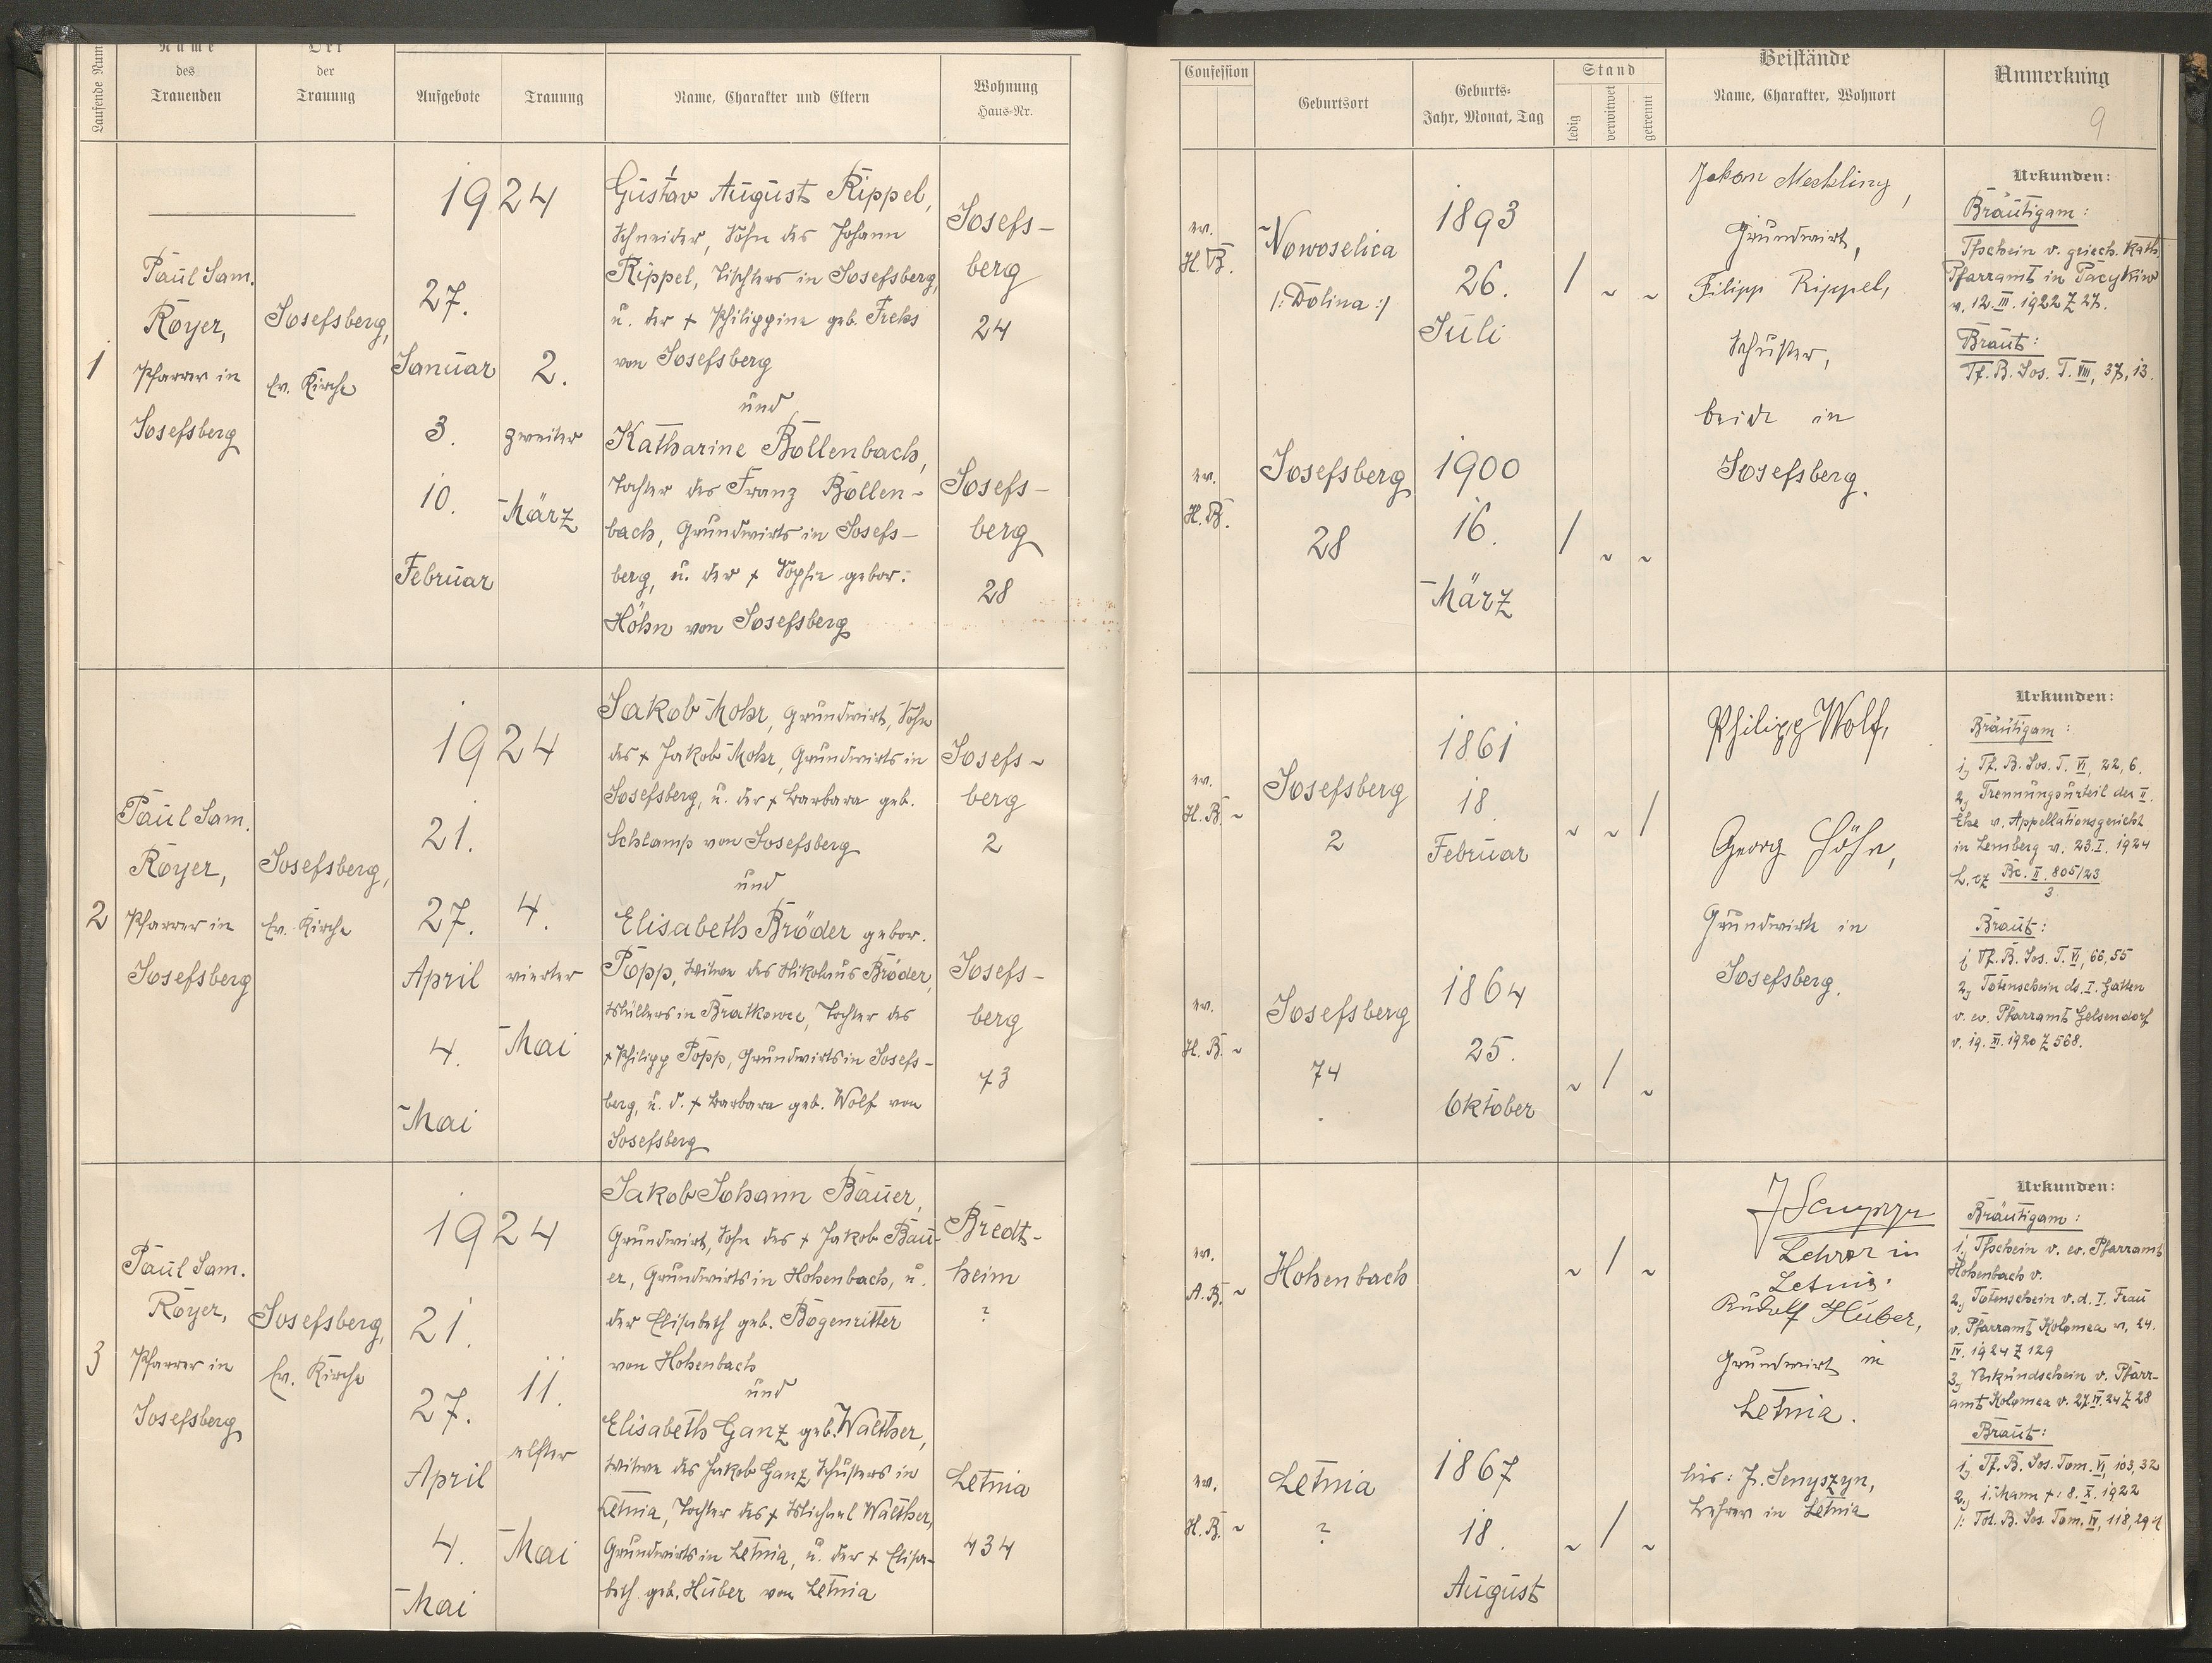 Laufende Num
Name
des
Trauenden
Ort
der
Trauung
Aufgebote
Trauung
Name, Charakter und Eltern
Wohnung
Haus-Nr.
Confession
Geburtsort
Geburts-
Jahr, Monat, Tag
Stand
ledig
verwitwet
getrennt
Beistände
Name, Charakter, Wohnort
Anmerkung
9
1
Paul Sam.
Royer,
Pfarrer in
Josefsberg
Josefsberg,
Ev. Kirche
1924
27.
Januar
3.
10.
Februar
2.
zweiter
März
Gustav August Rippel,
Schneider, Sohn des Johann
Rippel, Tischlers in Josefsberg,
u. der + Philippine geb. Frehs
von Josefsberg
und
Katharine Bollenbach,
Tochter des Franz Bollen-
bach, Grundwirts in Josefs-
berg, u. der + Sophie gebor.
Höhn von Josefsberg
Josefs-
berg
24
Josefs-
berg
28
ev.
H.B.
Nowoselica
/:Dolina:/
1893
26.
Juli
/ ~ ~
ev.
H.B.
Josefsberg
28
1900
16.
März
/ ~ ~
Jakon Meckling,
Grundwirt,
Filipp Rippel,
Schuster,
beide in
Josefsberg.
Urkunden:
Bräutigam:
Tfschein v. griech. kath.
Pfarramt in Pacykiw
v. 12.III.1922 Z 27.
Braut:
Tf. B. Jos. T. VIII, 37, 13.
2
Paul Sam.
Royer,
Pfarrer in
Josefsberg
Josefsberg,
Ev. Kirche
1924
21.
27.
April
4.
Mai
4.
vierter
Mai
Jakob Mohr, Grundwirt, Sohn
des + Jakob Mohr, Grundwirts in
Josefsberg, u. der + Barbara geb.
Schlamp von Josefsberg
und
Elisabeth Bröder gebor.
Popp, Witwe des Nikolaus Bröder,
Müllers in Bratkowce, Tochter des
+ Philipp Popp, Grundwirts in Josefs-
berg, u. d. + Barbara geb. Wolf von
Josefsberg
Josefs-
berg
2
Josefs-
berg
73
ev.
H.B. ~
Josefsberg
2
1861
18
Februar
~ ~ /
ev.
H.B. ~
Josefsberg
74
1864
25.
Oktober
~ / ~
Philipp Wolf,
Georg Höhn,
Grundwirte in
Josefsberg.
Urkunden:
Bräutigam:
1, Tf. B. Jos. T. VI, 22, 6.
2, Trennungsurteil der II.
Ehe v. Appellationsgericht
in Lemberg v. 23.I.1924
L.cz Bc. II. 805/23
3
Braut:
1, Tf. B. Jos. T. VI, 66, 55
2, Totenschein ds. I. Gatten
v. ev. Pfarramt Gelsendorf
v. 19. XI. 1920 Z 568.
3
Paul Sam.
Royer,
Pfarrer in
Josefsberg
Josefsberg,
Ev. Kirche
1924
21.
27.
April
4.
Mai
11.
elfter
Mai
Jakob Johann Bauer,
Grundwirt, Sohn des + Jakob Bau-
er, Grundwirts in Hohenbach, u.
der Elisabeth geb. Bogenritter
von Hohenbach
und
Elisabeth Ganz geb. Walther,
Witwe des Jakob Ganz, Schusters in
Letnia, Tochter des + Michael Walther,
Grundwirts in Letnia, u. der + Elisa-
beth geb. Huber von Letnia
Bredt-
heim
?
Letnia
434
ev.
A.B. ~
Hohenbach
~ / ~
ev.
H.B. ~
Letnia
?
1867
18.
August
~ / ~
J Senyszyn
Lehrer in
Letnia.
Rudolf Huber,
Grundwirt in
Letnia.
hie: J. Senyszyn,
Lehrer in Letnia
Urkunden:
Bräutigam:
1, Tfschein v. ev. Pfarramt
Hohenbach v.
2, Totenschein v. d. I. Frau
v. Pfarramt Kolomea v. 24.
IV. 1924 Z 129
3, Verkündschein v. Pfarr-
amt Kolomea v. 27.IV.24 Z 28
Braut:
1, Tf. B. Jos. Tom. VI, 103, 32
2, I. Mann +: 8. X. 1922
/: Tot. B. Jos. Tom. IV, 118, 29